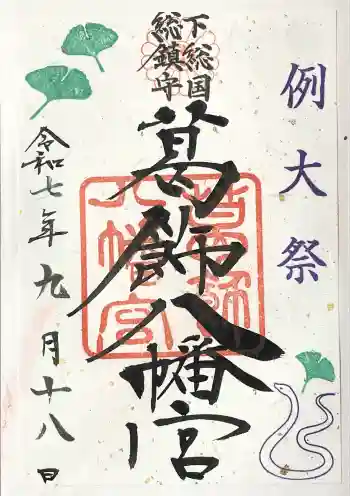 例大祭
下総国
総鎮守
葛飾八幡宮
葛飾
八幡宮
令和七年九月十八日